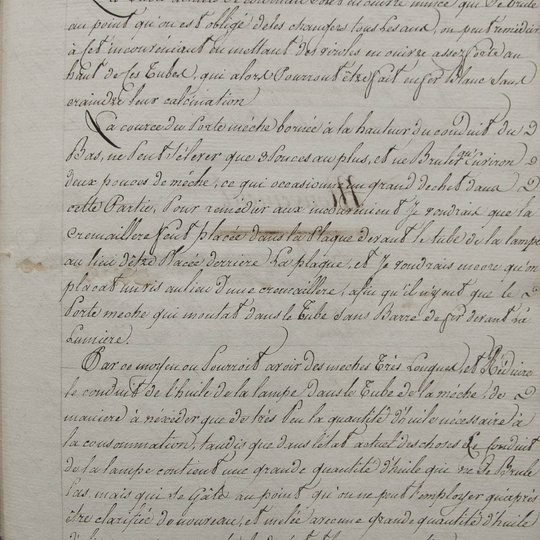 au point qu'on est obligé de les changer tous les ans, on peut remédier
à cet inconvenient en mettant des viroles en cuivre assez forte au
haut de ces Tubes, qui alors Pourront être fait en fer blanc sans
craindre leur calcination
La course du Porte mèche bornée à la hauteur du conduit du
Bas, ne Peut s'élever que 3 Pouces au plus, et ne Bruler qu'environ
deux pouces de mèche, ce qui occasionne un grand dechet dans
cette Partie, Pour remédier aux inconvenient Je voudrais que la
cremaillere fut placée dans la Plaque devant le tube de la lampe
au lieu d'être Placée derriere La plaque, et Je voudrais encore qu'on
plaçat un vis au lieu d'une cremaillere, afin qu'il n'y eut que le
Porte meche qui montat dans le Tube sans Barre de fer devant la
Lumiere.
Par ce moyen on Pourroit avoir des meches Très Longues, et Réduire
le conduit de l'huile de la lampe dans le Tube de la mèche, de
maniere à n'excéder que de très peu la quantité d'huile nécessaire à
la consommation, tandis que dans l'état actuel des choses Le conduit
de la lampe contient une grande quantité d'huile que ne se Brule
Pas mais qui se Gâte au point qu'on ne peut l'employer qu'après
être clarifiée de nouveau, et mêlée avec une grande quantité d'huile